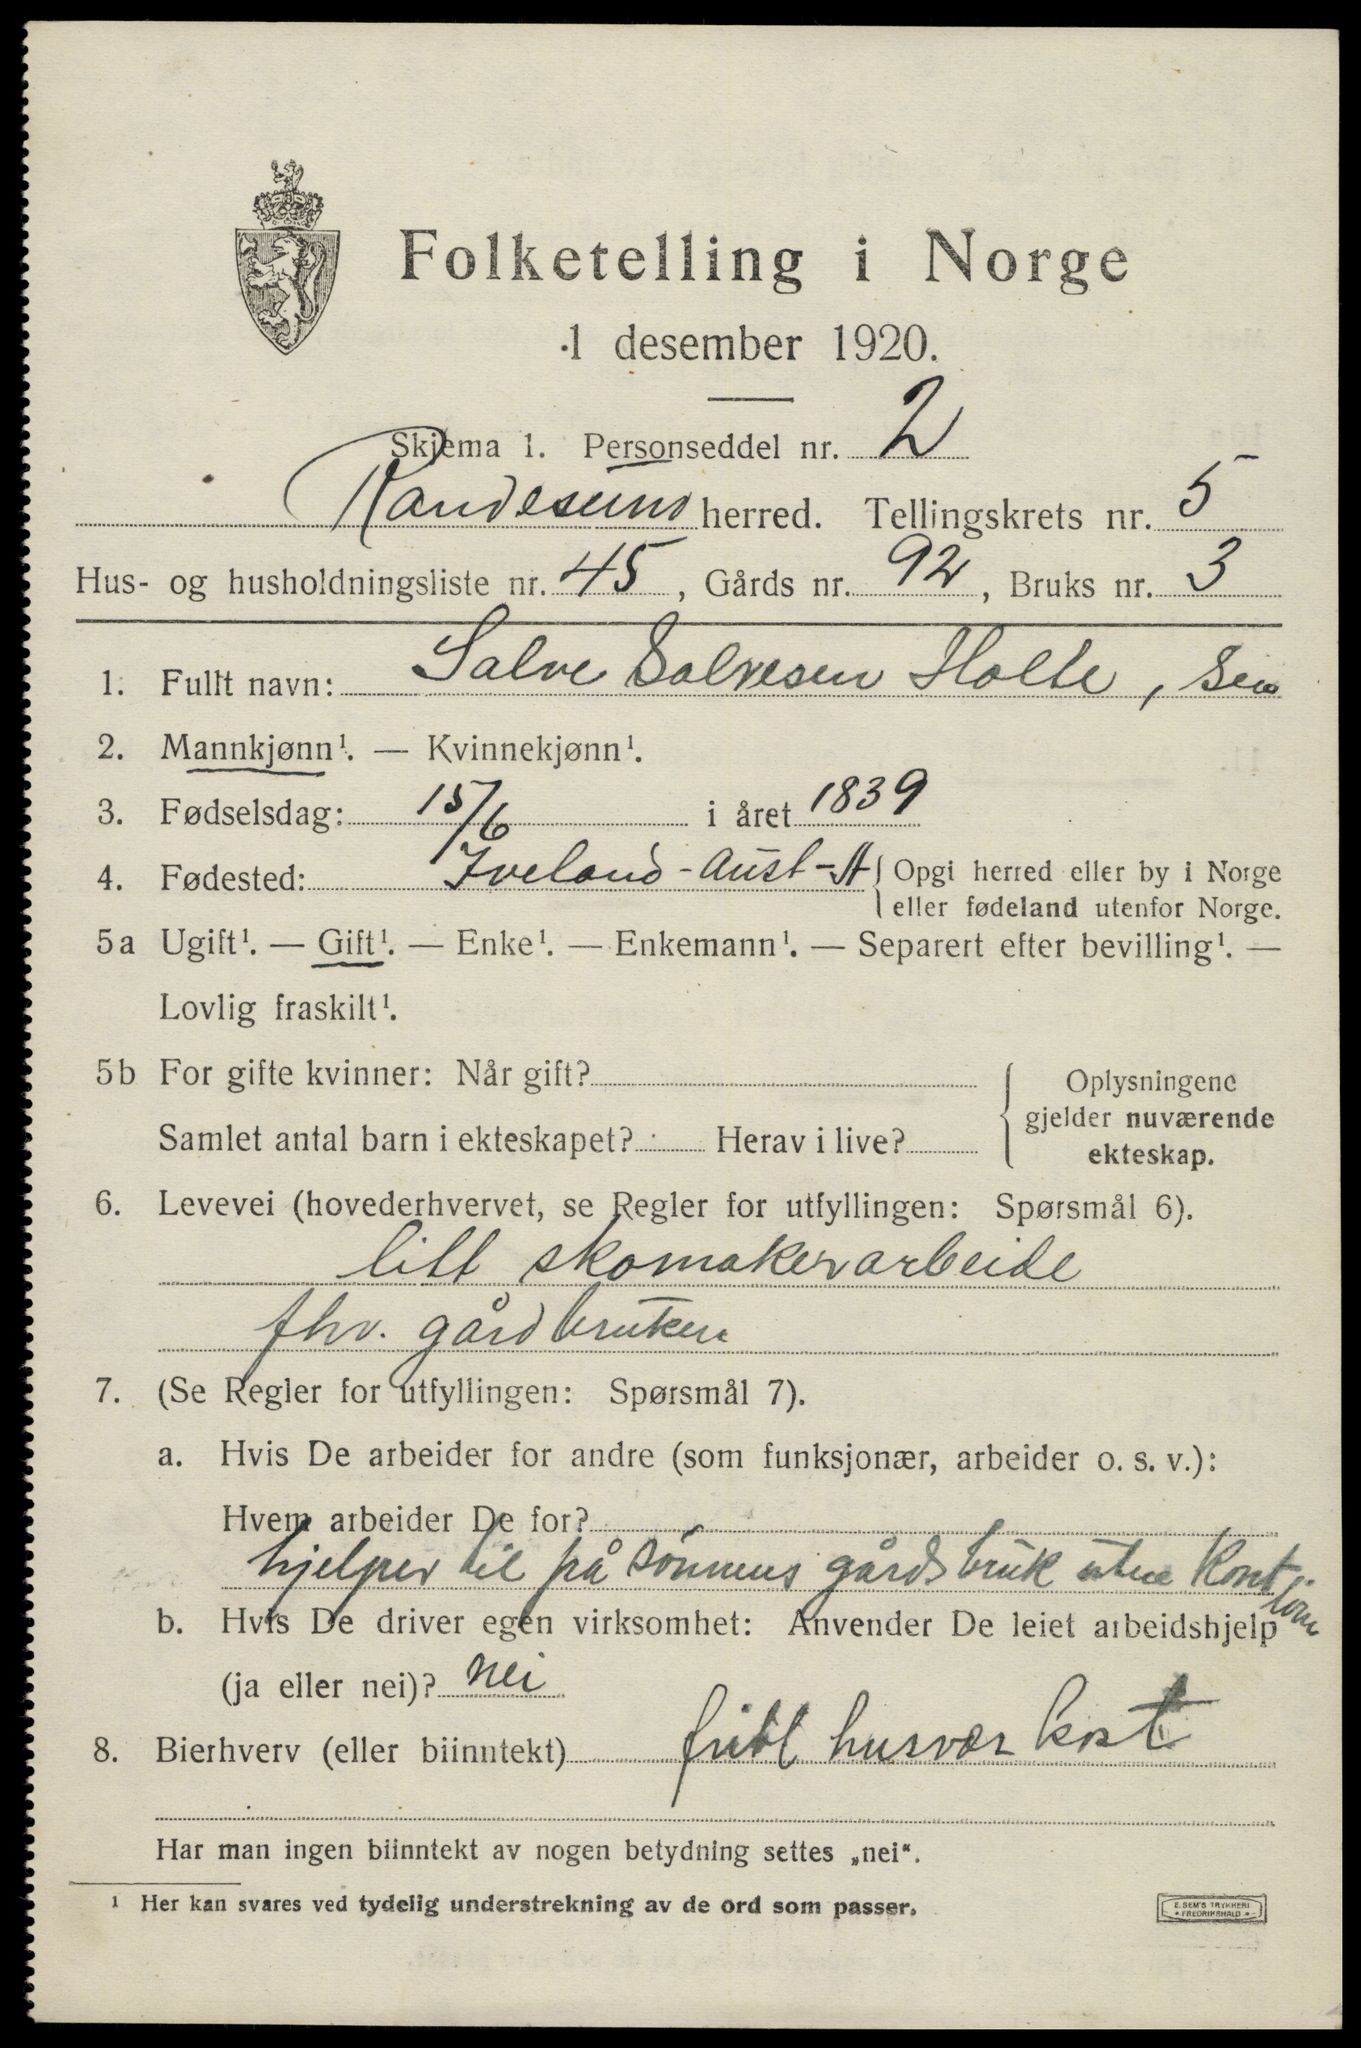 Folketelling i Norge
1 desember 1920.
Skjema 1. Personseddel nr. 2
Randesund herred. Tellingskrets nr. 5
Hus- og husholdningsliste nr. 45, Gårds nr. 92, Bruks nr. 3
1. Fullt navn: Salve Salvesen Holte, sen
2. Mannkjønn¹. — Kvinnekjønn¹.
3. Fødselsdag: 15/6 i året 1839
4. Fødested: Iveland - Aust-A { Opgi herred eller by i Norge
eller fødeland utenfor Norge.
5a Ugift¹. — Gift¹. — Enke¹. — Enkemann¹. — Separert efter bevilling¹. —
Lovlig fraskilt¹.
5b For gifte kvinner: Når gift? { Oplysningene
gjelder nuværende
Samlet antal barn i ekteskapet? Herav i live?
ekteskap.
6. Levevei (hovederhvervet, se Regler for utfyllingen: Spørsmål 6).
litt skomakerarbeide
fhv. gårdbruker
7. (Se Regler for utfyllingen: Spørsmål 7).
a. Hvis De arbeider for andre (som funksjonær, arbeider o. s. v.):
Hvem arbeider De for?
hjelper til på sönnens gårdsbruk uten kont
lön
b. Hvis De driver egen virksomhet: Anvender De leiet arbeidshjelp
(ja eller nei)? nei
8. Bierhverv (eller biinntekt) fritt husvær kost
Har man ingen biinntekt av nogen betydning settes „nei“.
¹ Her kan svares ved tydelig understrekning av de ord som passer.
E. SEM'S TRYKKERI
FREDRIKSHALD